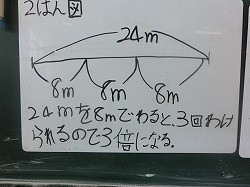 2はん 図
24m
8m 8m 8m
24mを8mでわると、3回わけ
られるので3倍になる.